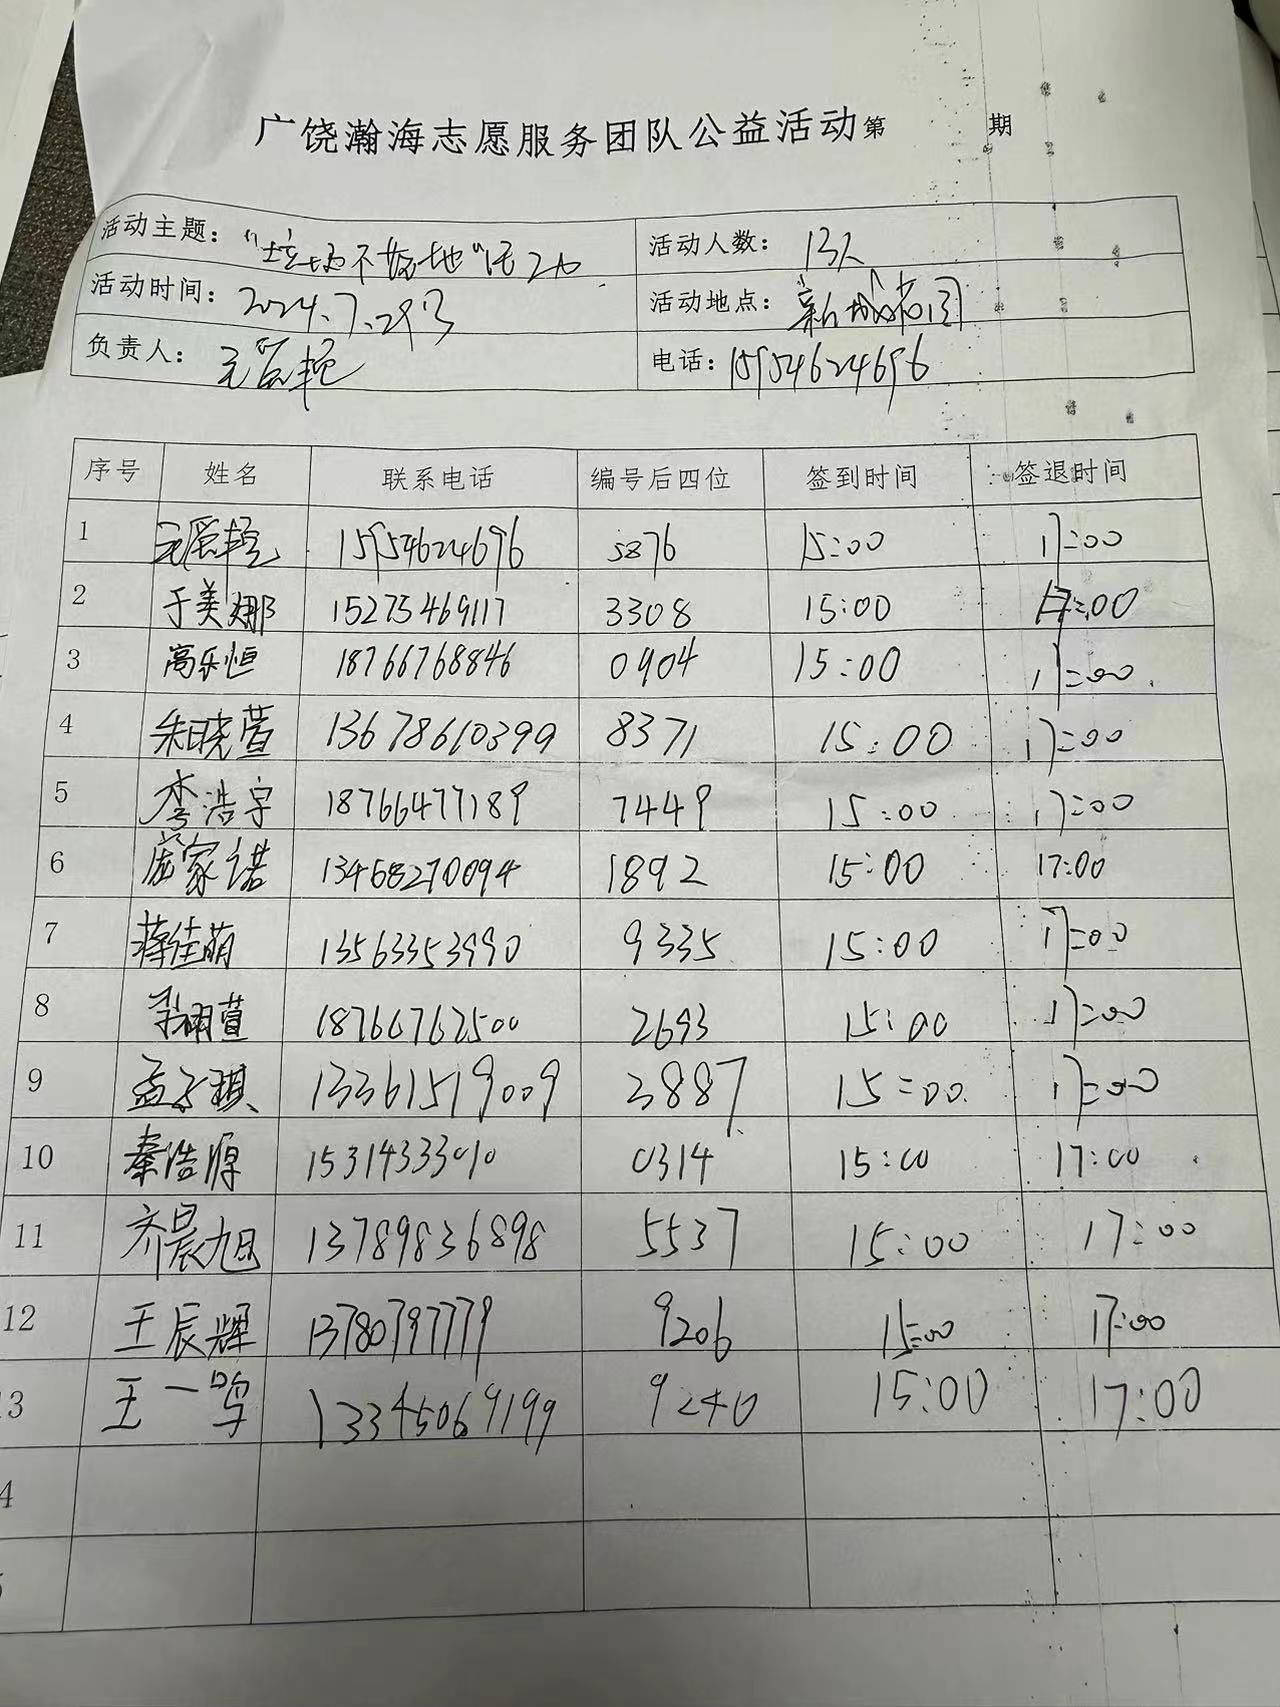 广饶瀚海志愿服务团队公益活动第 期
活动主题：“垃圾不落地”活动 活动人数：13人
活动时间：2024.7.29号 活动地点：新城花园
负责人： 电话：15954624696
序号 姓名 联系电话 编号后四位 签到时间 签退时间
1 15954624696 5876 15:00 17:00
2 于美娜 15275469117 3308 15:00 17:00
3 高乐恒 18766768846 0904 15:00 17:00
4 朱晓萱 13678610399 8371 15:00 17:00
5 李浩宇 18766477189 7449 15:00 17:00
6 庞家诺 13468270094 1892 15:00 17:00
7 蒋佳萌 13563353990 9335 15:00 17:00
8 18766762500 2693 15:00 17:00
9 孟子琪 13361519009 3887 15:00 17:00
10 秦浩源 15314333010 0314 15:00 17:00
11 齐晨旭 13789836898 5537 15:00 17:00
12 王辰辉 13780797779 9206 15:00 17:00
13 王一鸣 13345069199 9240 15:00 17:00
4
5